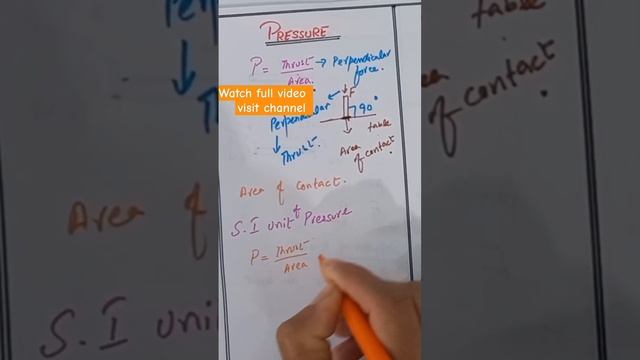 PRESSURE
P = Thrust / Area. → Perpendicular force.
Watch full video
visit channel
F
Perpendicular
90°
table
Thrust.
Area of contact.
Area of contact.
S.I unit of Pressure
P = Thrust / Area
table
of contact.
Area of
S.I uni